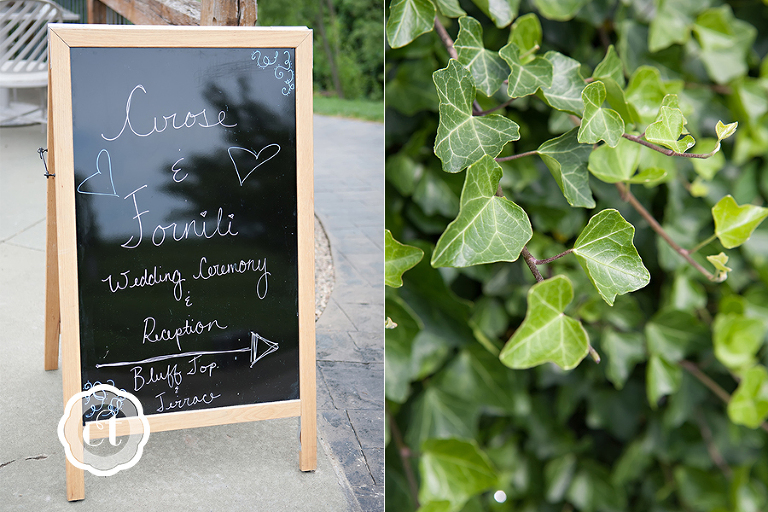 Cirose
&
Fornili
Wedding Ceremony
&
Reception
Bluff Top
&
Terrace